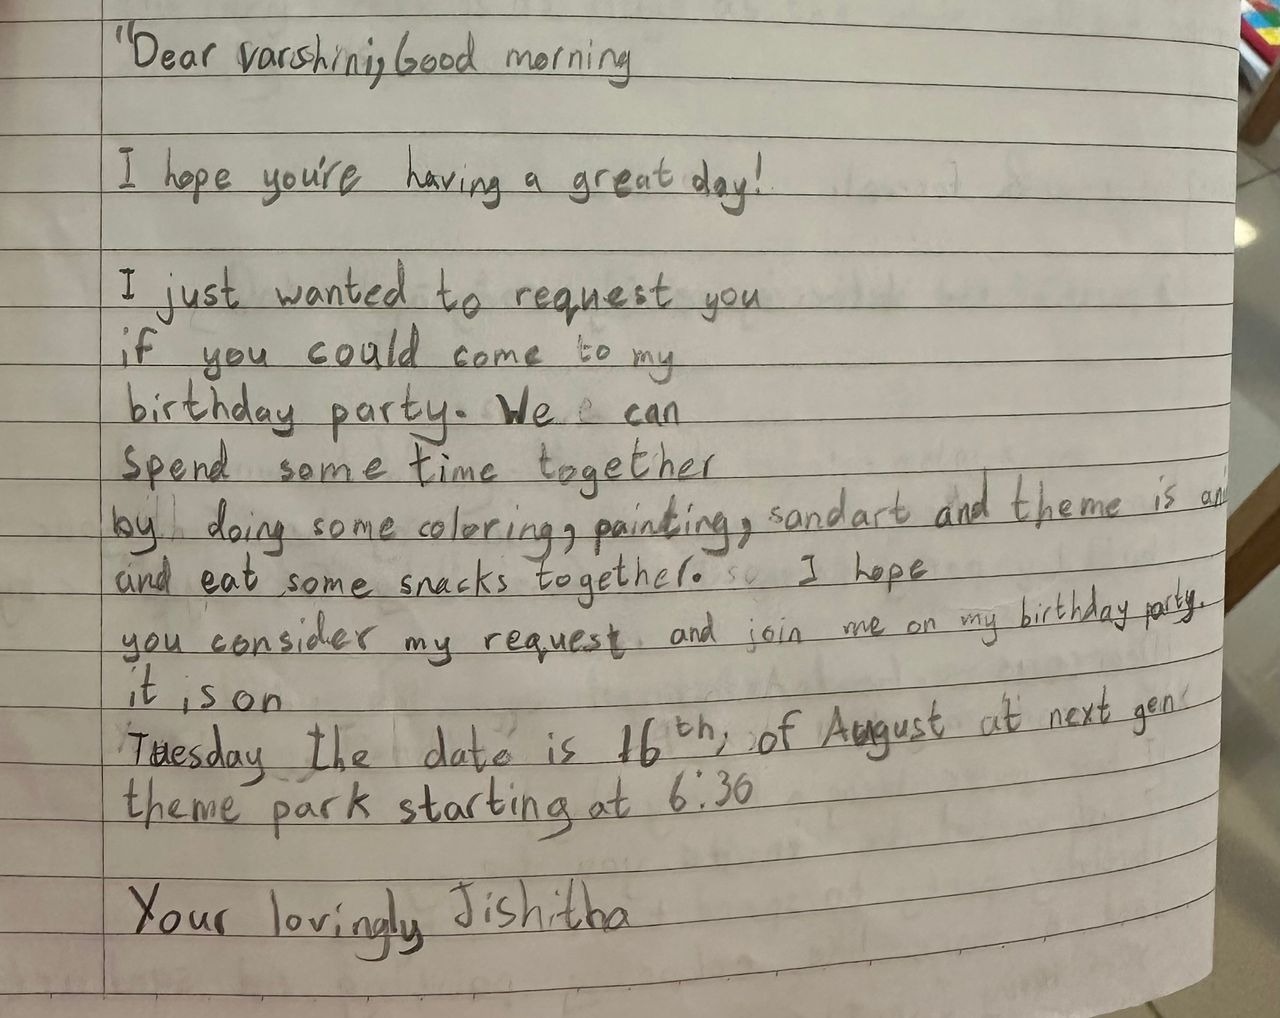 "Dear varshini, Good morning
I hope you're having a great day!
I just wanted to request you
if you could come to my
birthday party. We can
spend some time together
by doing some coloring, painting, sandart and theme is
and eat some snacks together. so I hope
you consider my request and join me on my birthday party.
it is on
Tuesday the date is 16th, of August at next gen
theme park starting at 6:30
Your lovingly Jishitha